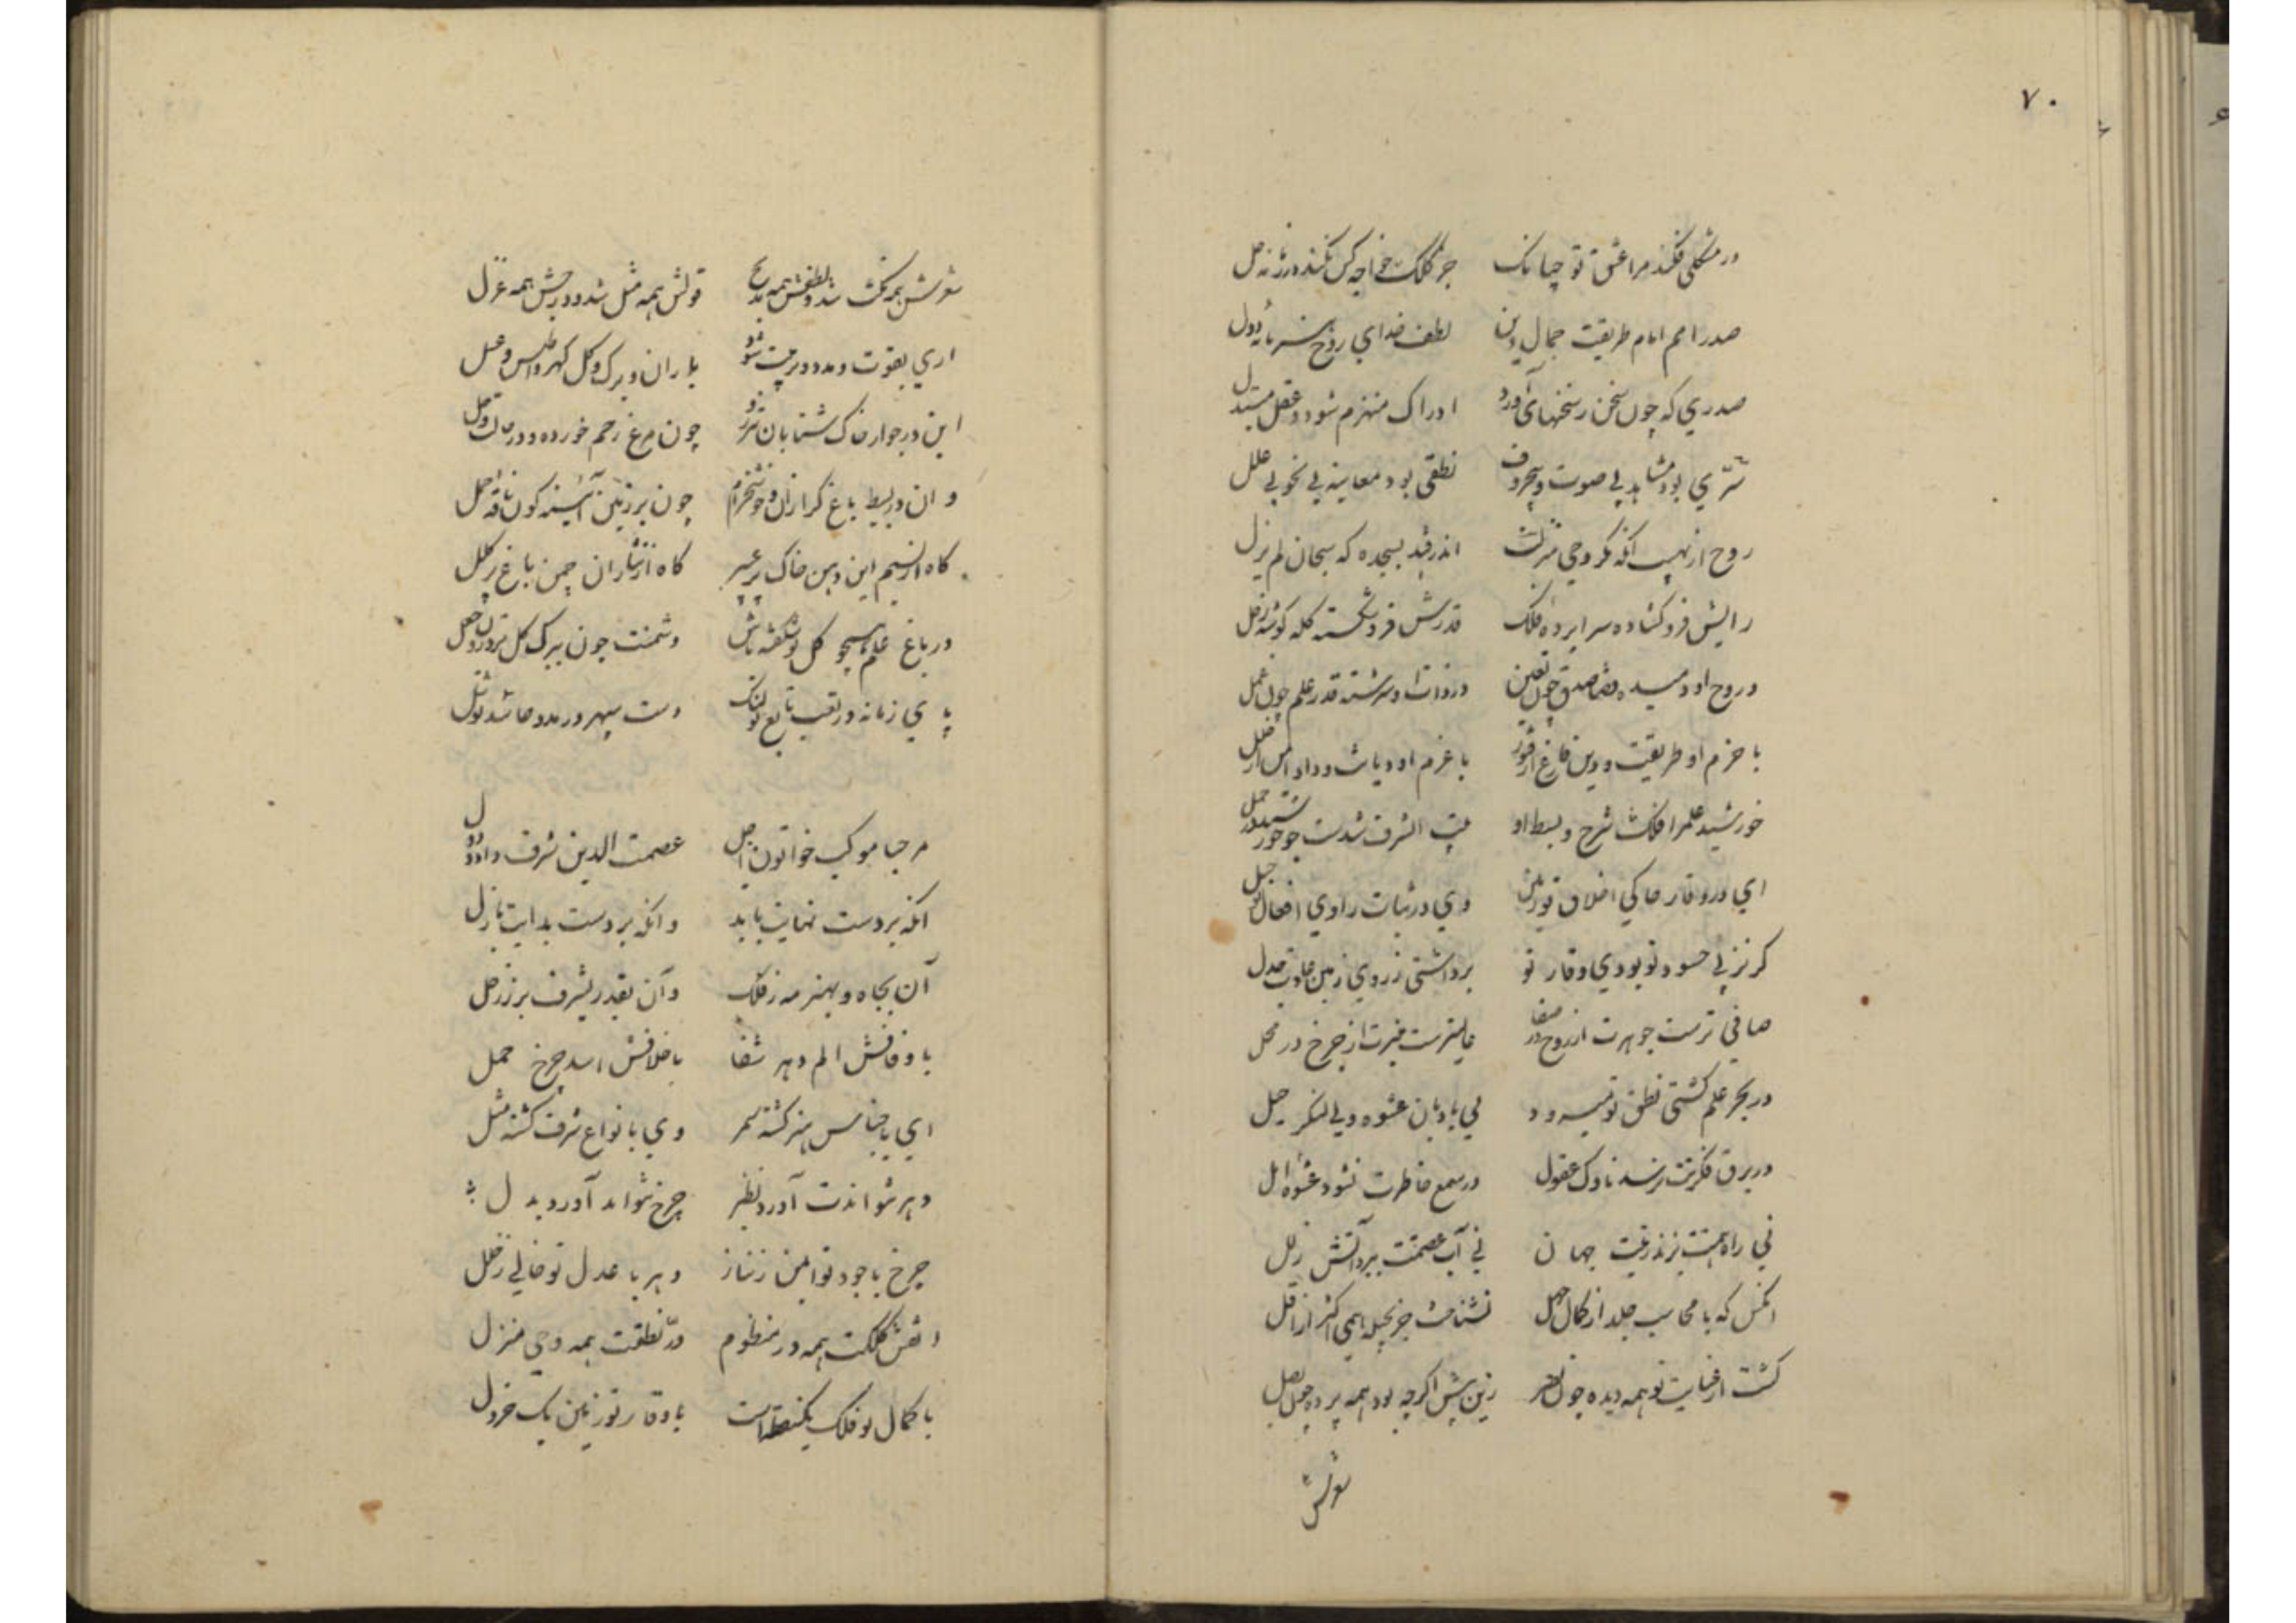 ۷۰
در مشکلی فکند مرا عشق تو چنانک جز کلک خواجه کس نکند در زمانه حل
صدر امم امام طریقت جمال دین لطف خدای روح بشر مایه دول
صدری که چون سخن ز سخنهای آورد ادراک منهزم شود و عقل مبتذل
سری بود مشاهد بی صوت و بی حروف نطقی بود معاینه بی نحو بی علل
روح از نهیب آنکه مگر وحی منزلست اندر فتد بسجده که سبحان لم یزل
رایش فرو کشاده سراپرده فلک قدرش فرو شکسته کله گوشه زحل
در روح او دمیده قضا صدق چون یقین در ذات او سرشته قدر علم چون عمل
با حزم او طریقت و دین فارغ از فتور با عزم او دیانت و داد ایمن از خلل
خورشید علم را فلک شرح و بسط او بیت الشرف شدست چو خورشید در حمل
ای در وقار حاکی اخلاق تو زمین وی در ثبات راوی افعال تو جبل
کر نز پی حسود تو بودی وقار تو برداشتی ز روی زمین عادت جدل
صافی ترست جوهرت از روح در صفا عالیترست منبرت از چرخ در محل
در بحر علم کشتی نطق تو میرود بی بادبان عشوه و بی لنکر حیل
در برق فکرتت نرسد ناوک عقول در سمع خاطرت نشود عشوه امل
نی راه همتت بزند زینت جهان نی آب عصمتت ببرد آتش زلل
انکس که با محاسب جلد از کمال جهل نشناخت جز بحیله همی اکثر از اقل
کشت از عنایت تو همه دیده چون بصر زین پیش اکرچه بود همه پرده چون بصل
شعرش
شعرش همه نکت شد و لطفش همه بدیع قولش همه مثل شد و درجش همه غزل
اری بقوت و مدد و تربیت شود باران و برک و کل کهر و اطلس و عسل
این در جوار خاک شتابان چون مرغ زخم خورده و در
و ان در بسیط باغ کرازان و خوشخرام چون بر زمین آینه کون ناقه جمل
کاه از نسیم این دهن خاک پر عبیر کاه از نثار ان چمن باغ پر کلل
در باغ علم همچو کل نو شکفته باش دشمنت چون ببرک کل
پای زمانه در تعب تابع تو لنک دست سپهر در مدد حاسد تو شل
مرحبا موکب خواتون اجل عصمت الدین شرف داد و دول
انکه بردست نهایت بابد وانکه بردست بدایت بازل
آن بجاه و بهنر مه ز فلک وآن بقدر و شرف بر ز زحل
با وفاقش الم دهر شفا با خلافش اسد چرخ حمل
ای باجناس هنر کشته سمر وی بانواع شرف کشته مثل
دهر نتواندت آورد نظیر چرخ نتواند آورد بدل
چرخ با جود تو ایمن ز نیاز دهر با عدل تو خالی ز خلل
نقش کلکت همه در منظوم درّ نطقت همه وحی منزل
با کمال تو فلک یکنقطه است با وقار تو زمین یک خردل